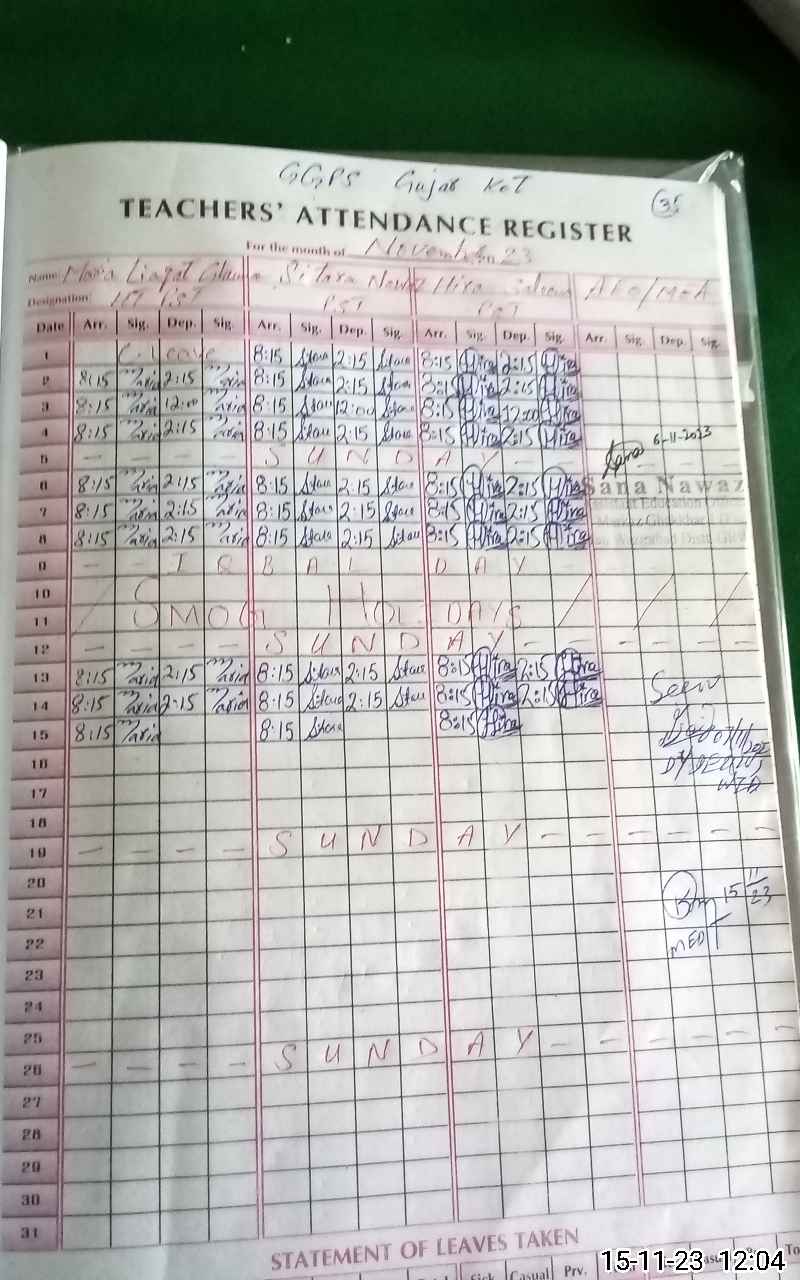 GGPS Gujar Kot
35
TEACHERS' ATTENDANCE REGISTER
For the month of November 23
Name: Maria Liaqat Sitara Nawaz Hira AEO/MEA
Designation: PST PST
Date Arr. Sig. Dep. Sig. Arr. Sig. Dep. Sig. Arr. Sig. Dep. Sig. Arr. Sig. Dep. Sig.
1 C. leave 8:15 Sitara 2:15 Sitara 8:15 Hira 2:15 Hira
2 8:15 Maria 2:15 Maria 8:15 Sitara 2:15 Sitara 8:15 Hira 2:15 Hira
3 8:15 Maria 12:00 Maria 8:15 Sitara 12:00 Sitara 8:15 Hira 12:00 Hira
4 8:15 Maria 2:15 Maria 8:15 Sitara 2:15 Sitara 8:15 Hira 2:15 Hira
6-11-2023
5 - - - - S U N D A Y - - - - - -
6 8:15 Maria 2:15 Maria 8:15 Sitara 2:15 Sitara 8:15 Hira 2:15 Hira
Sana Nawaz
7 8:15 Maria 2:15 Maria 8:15 Sitara 2:15 Sitara 8:15 Hira 2:15 Hira
Assistant Education
8 8:15 Maria 2:15 Maria 8:15 Sitara 2:15 Sitara 8:15 Hira 2:15 Hira
9 - - I Q B A L D A Y
10
11 / SMOG HOLIDAYS / / /
12 - - - - S U N D A Y - - - - - -
13 8:15 Maria 2:15 Maria 8:15 Sitara 2:15 Sitara 8:15 Hira 2:15 Hira
14 8:15 Maria 2:15 Maria 8:15 Sitara 2:15 Sitara 8:15 Hira 2:15 Hira
Seen
15 8:15 Maria 8:15 Sitara 8:15 Hira
16
17
18
19 - - - - S U N D A Y - - - - - -
20
15 11/23
21
22
23
24
25
26 - - - - S U N D A Y - - - - - -
27
28
29
30
31
STATEMENT OF LEAVES TAKEN
Sick Casual Prv.
15-11-23 12:04